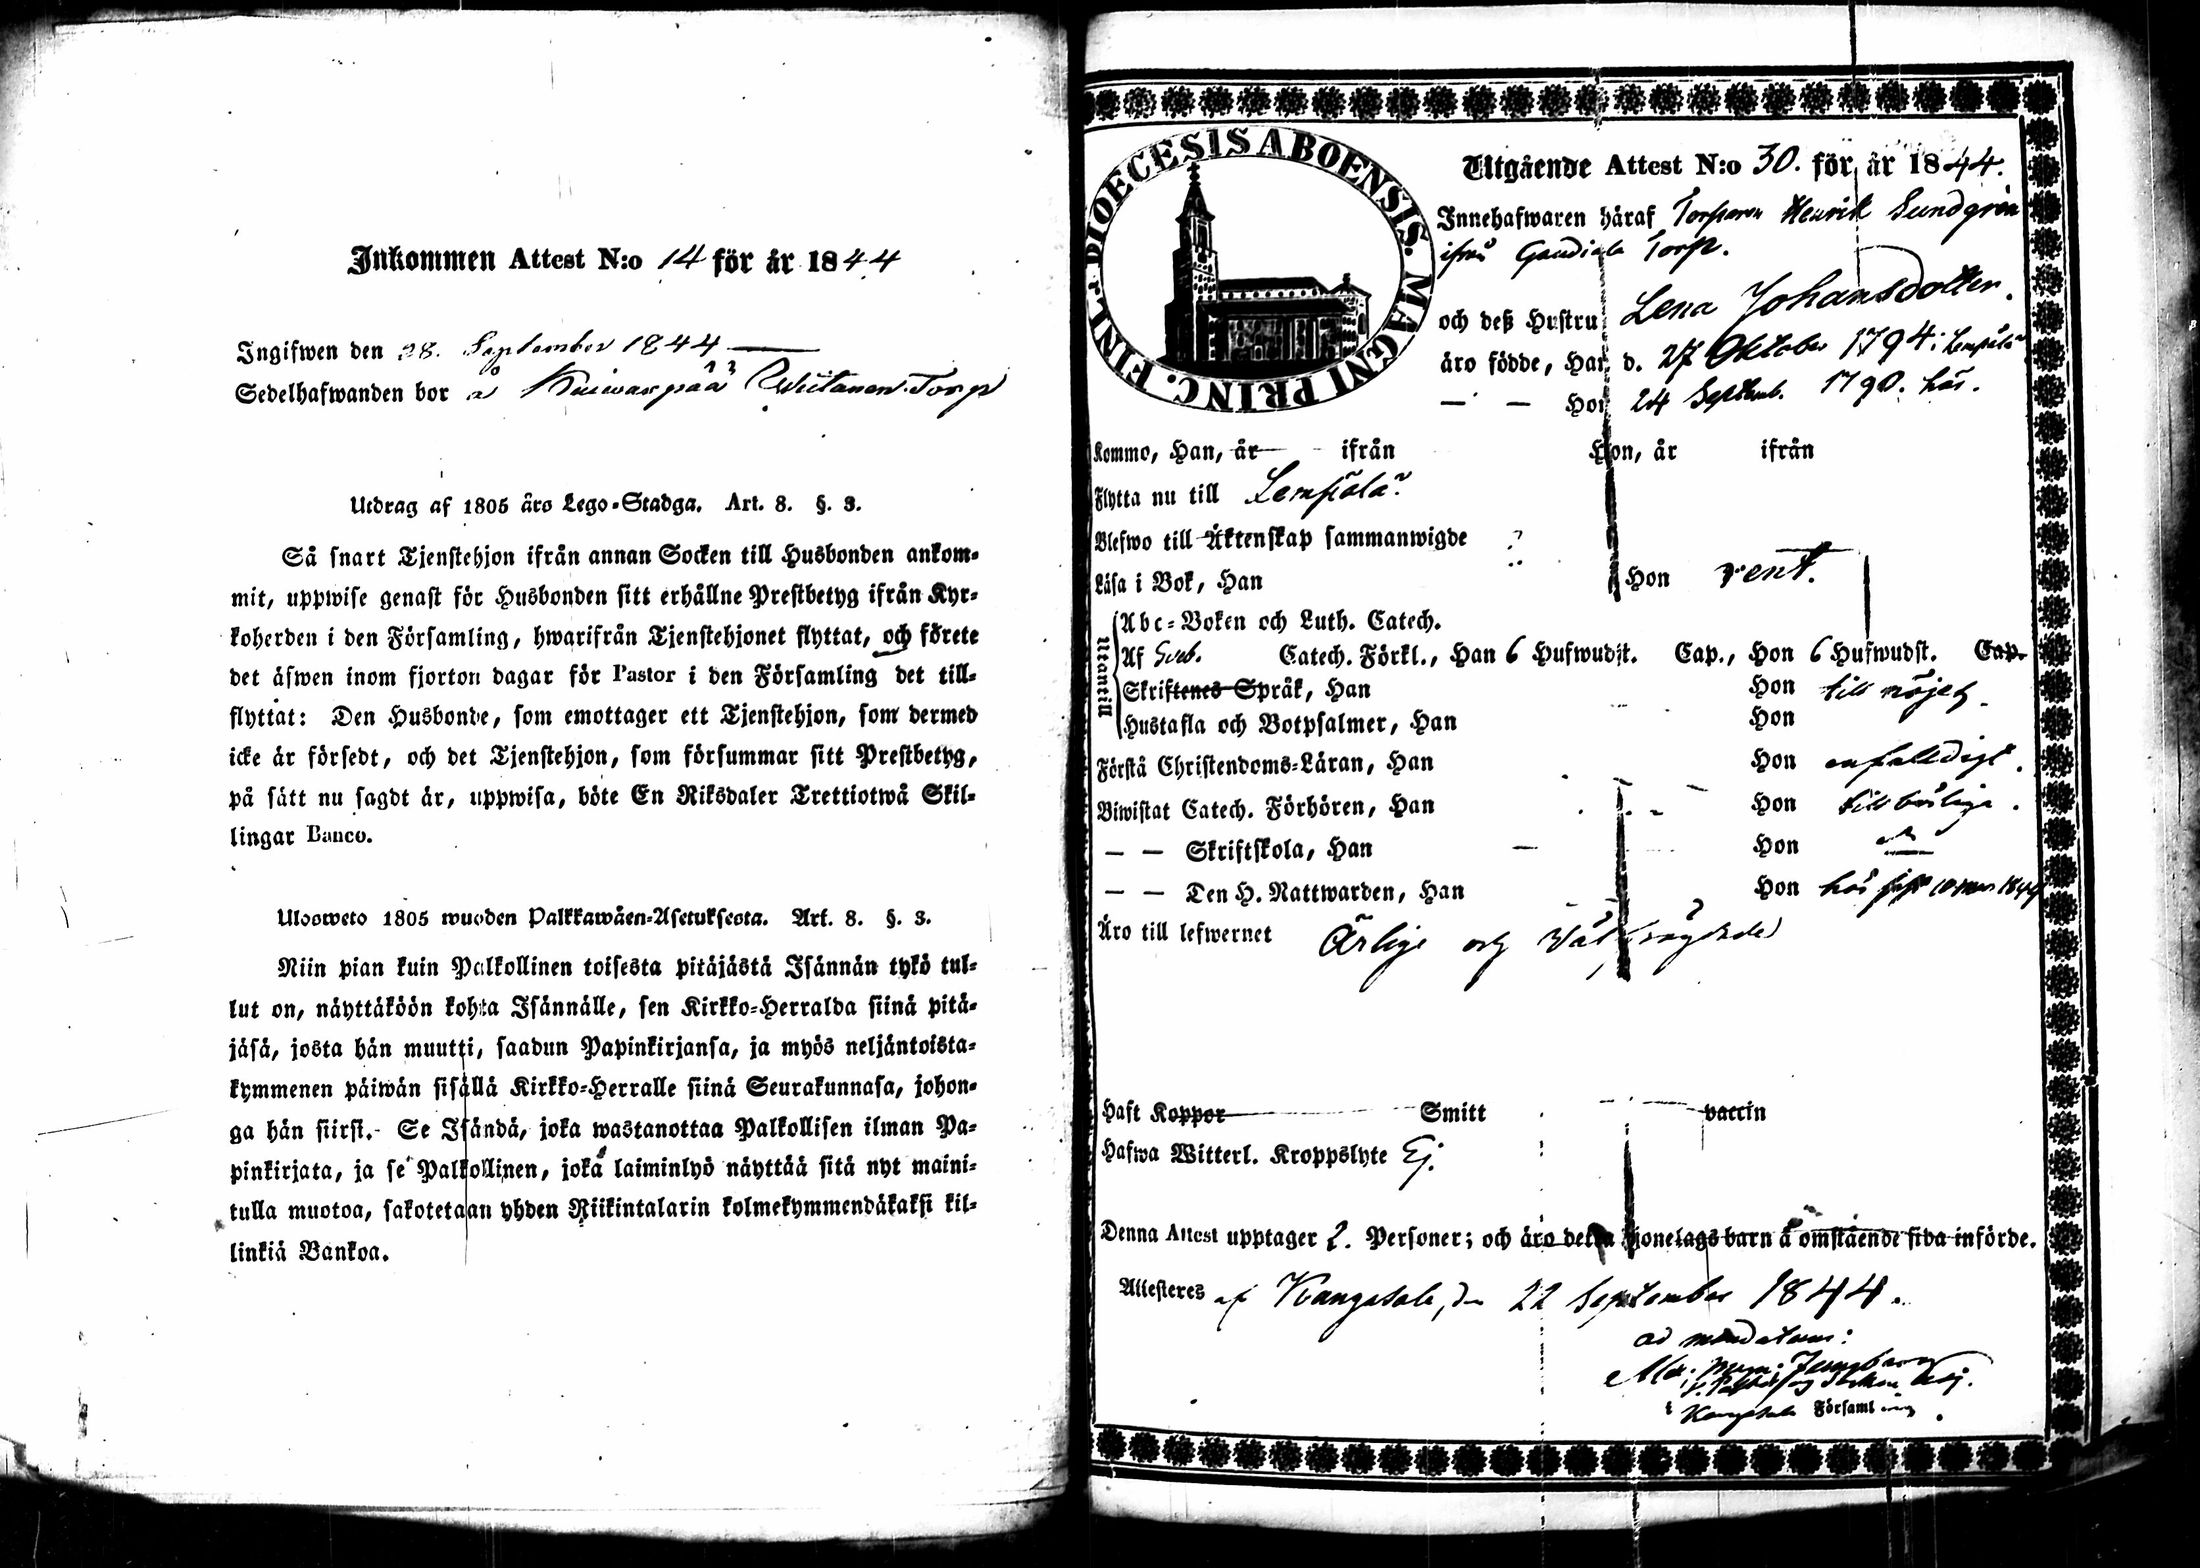 Inkommen Attest N:o 14 för år 1844
Ingifwen den 28. September 1844
Sedelhafwanden bor å Kuiwaspää Wiitanen Torp
Utdrag af 1805 års Lego-Stadga. Art. 8. §. 3.
Så snart Tjenstehjon ifrån annan Socken till Husbonden ankom-
mit, uppwise genast för Husbonden sitt erhållne Prestbetyg ifrån Kyr-
koherden i den Församling, hwarifrån Tjenstehjonet flyttat, och förete
det äfwen inom fjorton dagar för Pastor i den Församling det till-
flyttat: Den Husbonde, som emottager ett Tjenstehjon, som dermed
icke är försedt, och det Tjenstehjon, som försummar sitt Prestbetyg,
på sätt nu sagdt är, uppwisa, böte En Riksdaler Trettiotwå Skil-
lingar Banco.
Ulosweto 1805 wuoden Palkkawäen-Asetuksesta. Art. 8. §. 3.
Niin pian kuin Palkollinen toisesta pitäjästä Isännän tykö tul-
lut on, näyttäköön kohta Isännälle, sen Kirkko-Herralda siinä pitä-
jäsä, josta hän muutti, saadun Papinkirjansa, ja myös neljäntoista-
kymmenen päiwän sisällä Kirkko-Herralle siinä Seurakunnasa, johon-
ga hän siirsi. Se Isändä, joka wastanottaa Palkollisen ilman Pa-
pinkirjata, ja se Palkollinen, joka laiminlyö näyttää sitä nyt maini-
tulla muotoa, sakotetaan yhden Riikintalarin kolmekymmendäkaksi kil-
linkiä Bankoa.
DIOECESIS ABOENSIS. MAGNI PRINC. FINL.
Utgående Attest N:o 30. för år 1844.
Innehafwaren häraf Torparen Henrik Sundgrén
ifrån Torp.
och deß Hustru Lena Johansdotter.
äro födde, Han d. 27 Oktober 1794 i Lempälä
— — Hon 24 Septemb. 1790. här.
Kommo, Han, år ifrån Hon, år ifrån
Flytta nu till Lempäla
Blefwo till Äktenskap sammanwigde
Läsa i Bok, Han Hon rent.
Utantill
Abc-Boken och Luth. Catech.
Af Sveb. Catech. Förkl., Han 6 Hufwudst. Cap., Hon 6 Hufwudst. Cap.
Skriftenes Språk, Han Hon till nöjes
Hustafla och Botpsalmer, Han Hon
Förstå Christendoms-Läran, Han Hon enfaldigt.
Biwistat Catech. Förhören, Han Hon tillbörliga.
— — Skriftskola, Han Hon
— — Den H. Nattwarden, Han Hon här 1844
Äro till lefwernet Ärlige och Väl frägdade
Haft Koppor Smitt vaccin
Hafwa Witterl. Kroppslyte Ej.
Denna Attest upptager 2. Personer; och äro deßa hjonelags barn å omstående sida införde.
Attesteres af Kangasala, den 22 September 1844.
ad mandatum:
i Kangasala Församling.